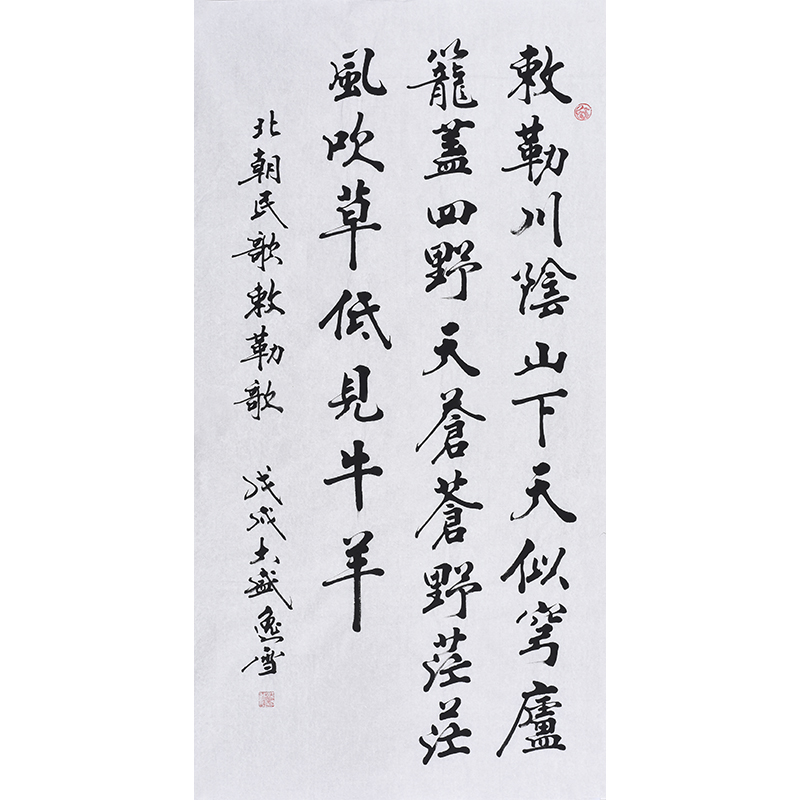 敕勒川陰山下天似穹廬
籠蓋四野天蒼蒼野茫茫
風吹草低見牛羊
北朝民歌敕勒歌 戊戌盛逸雪